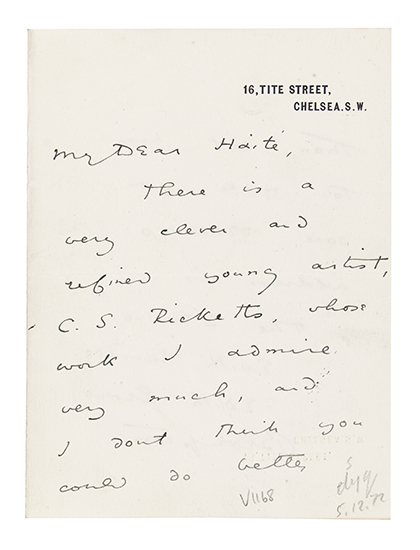 16, TITE STREET,
CHELSEA. S. W.
My Dear Haité,
There is a
very clever and
refined young artist,
C. S. Ricketts, whose
work I admire
very much, and
I dont think you
could do better
V1168
5.12.72